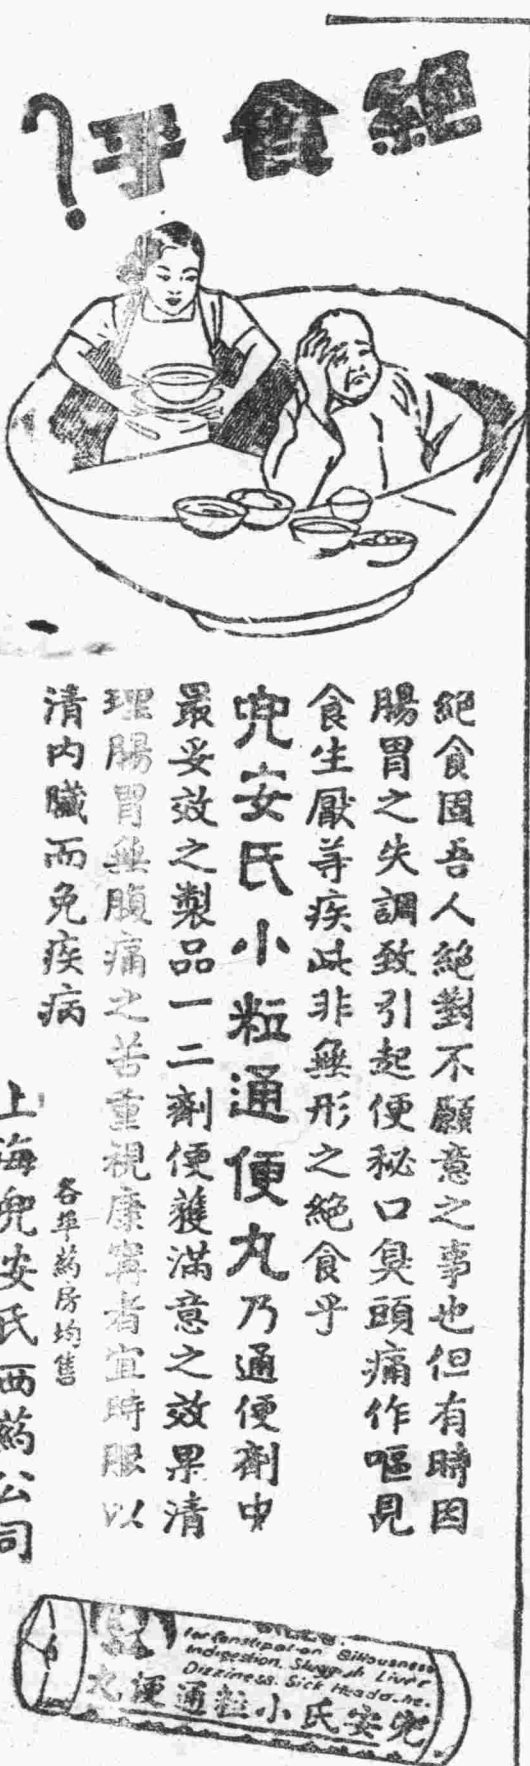 絕食乎？
絕食固吾人絕對不願意之事也但有時因
腸胃之失調致引起便秘口臭頭痛作嘔見
食生厭等疾此非無形之絕食乎
兜安氏小粒通便丸乃通便劑中
最妥效之製品一二劑便獲滿意之效果清
理腸胃無腹痛之苦重視康寧者宜時服以
清內臟而免疾病
各埠药房均售
上海兜安氏西药公司
for Constipation, Biliousness
Indigestion, Sluggish Liver
Dizziness, Sick Headache.
兜安氏小粒通便丸